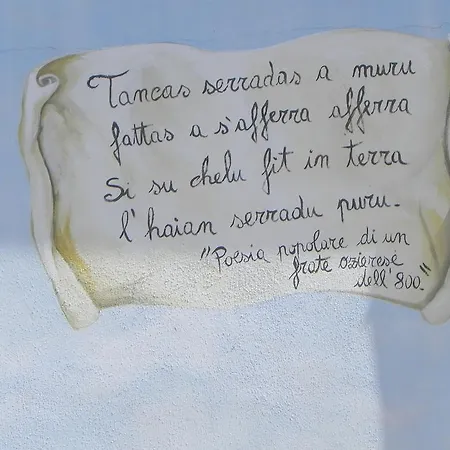 Tancas serradas a muru
fattas a s'afferra afferra
Si su chelu fit in terra
l'haian serradu puru.
"Poesia popolare di un
frate ozierese
dell'800."